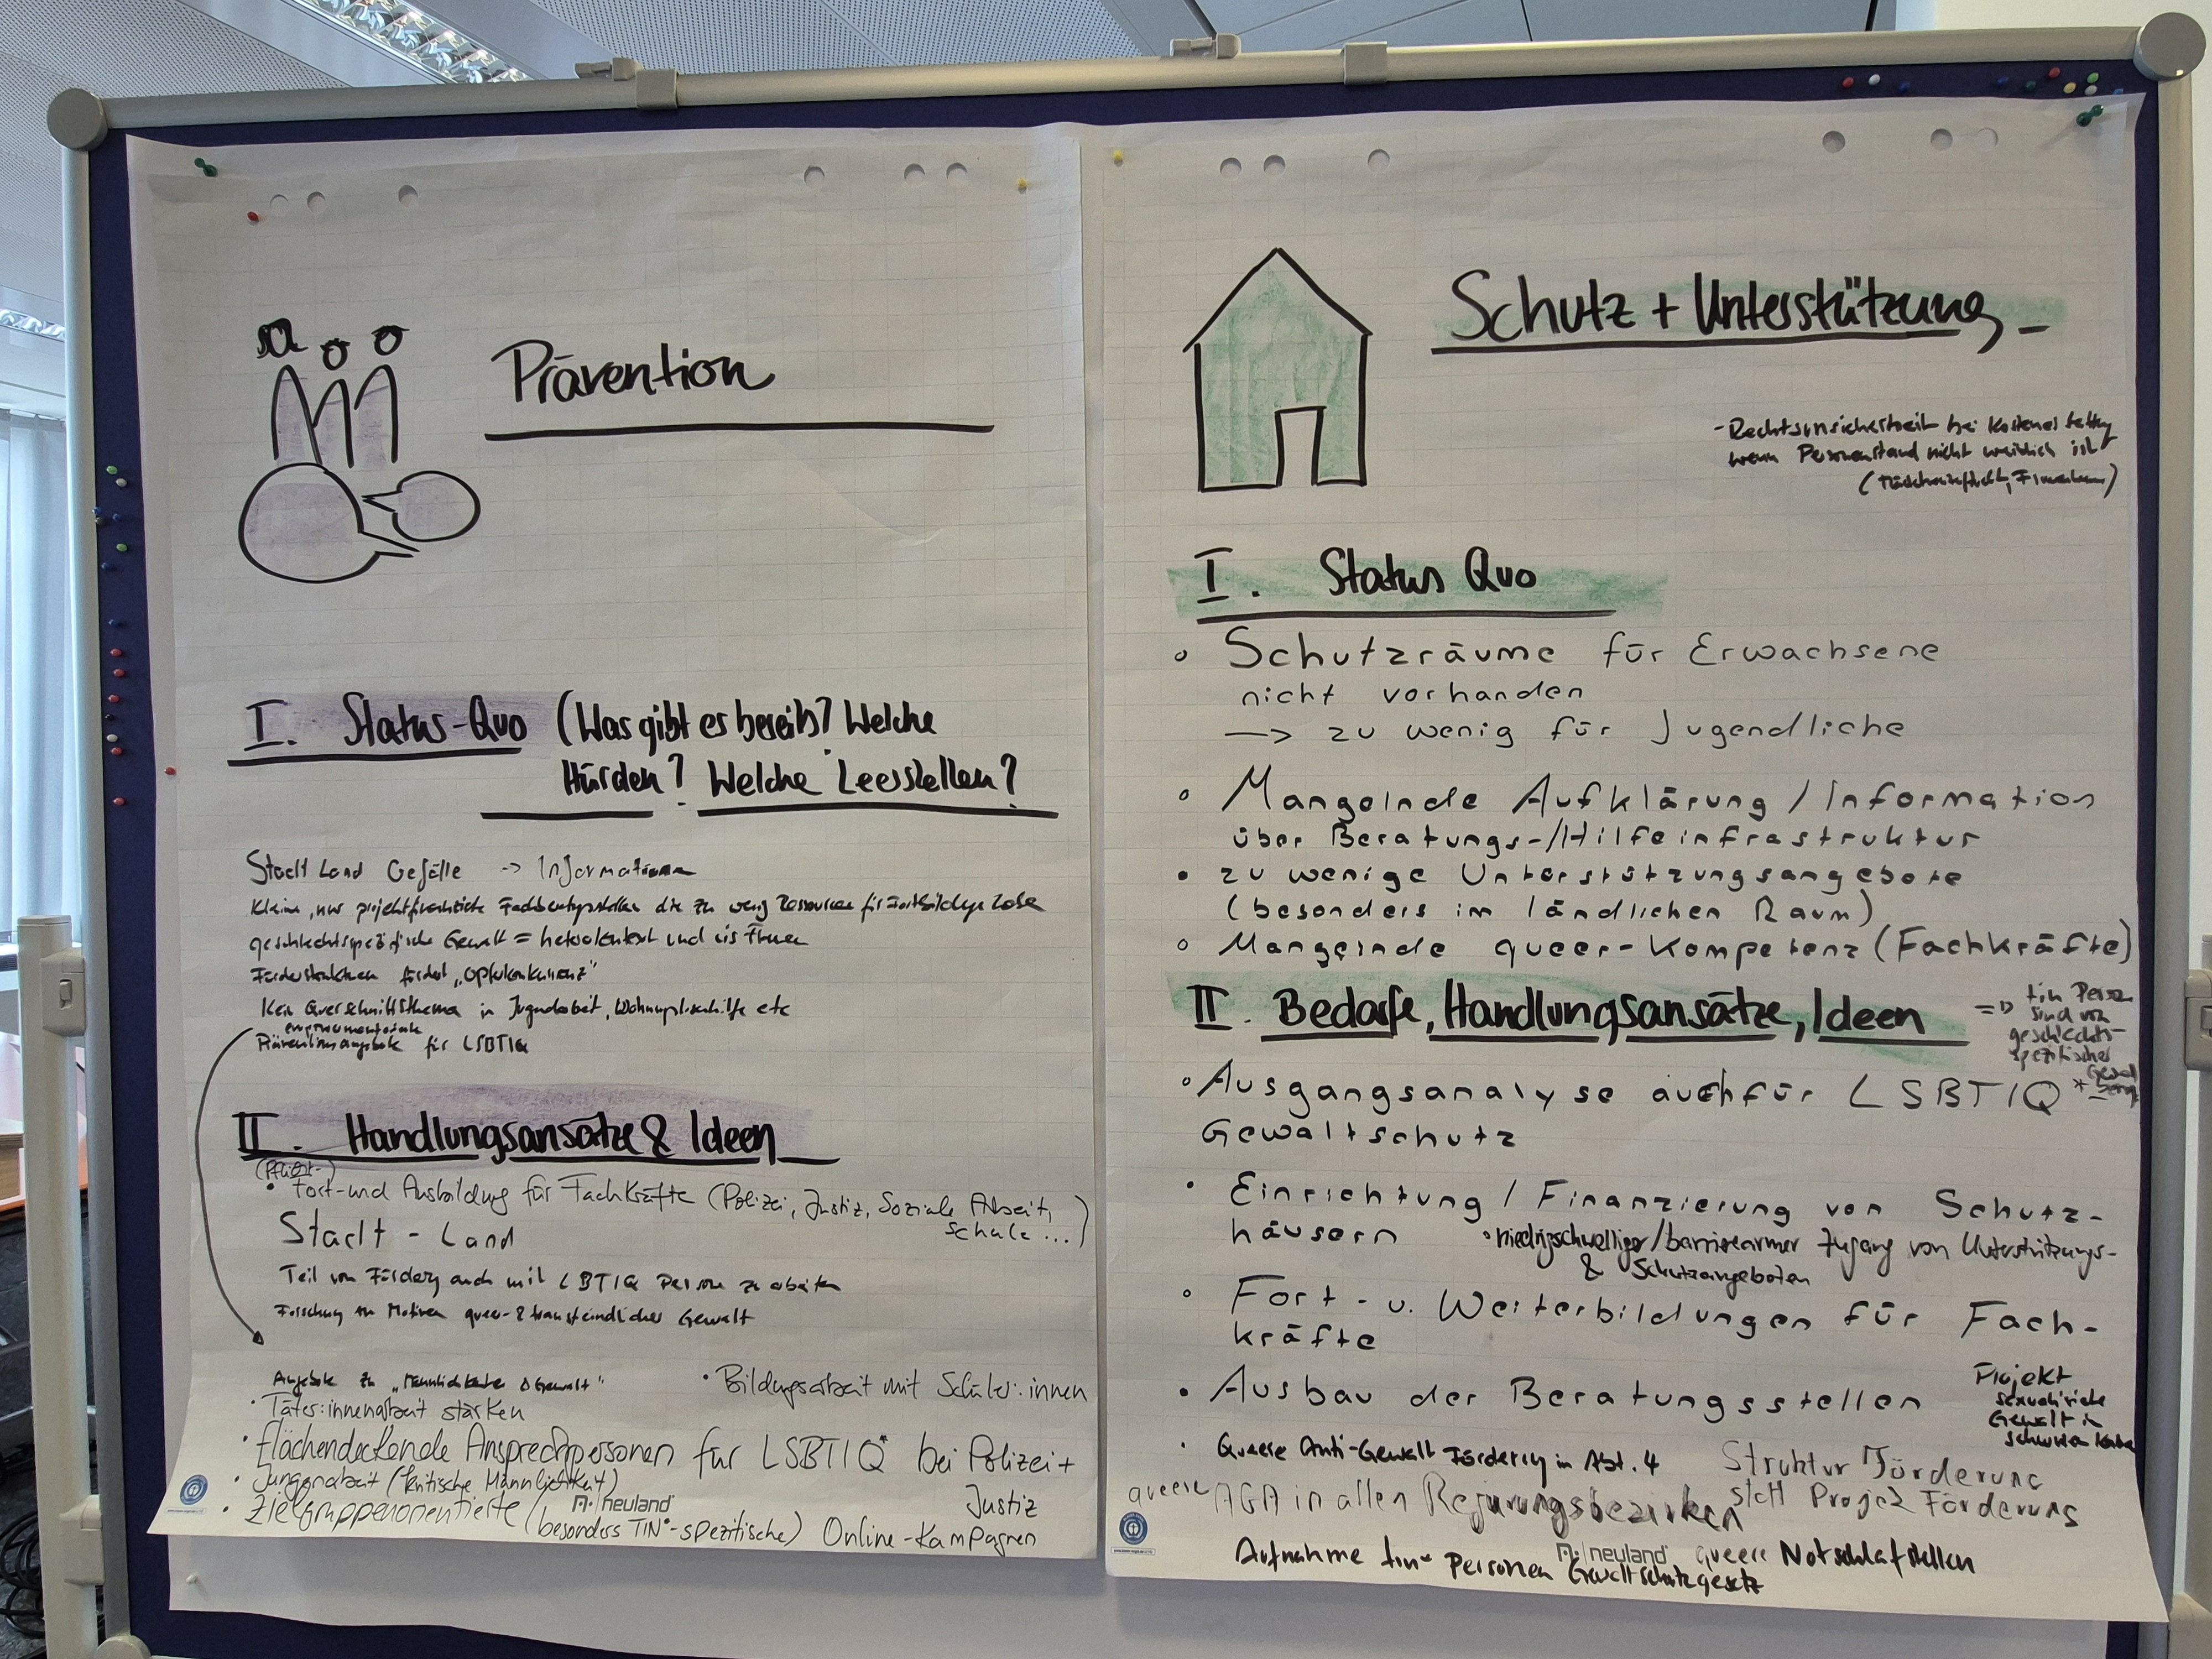 Prävention
I. Status-Quo (Was gibt es bereits? Welche
Hürden? Welche Leerstellen?
Stadt Land Gefälle -> Informationen
Kleine, nur projektfinanzierte Fachberatungsstellen die zu wenig Ressourcen für Fortbildungen haben
geschlechtsspezifische Gewalt = heterokontext und cis Frauen
Förderstrukturen fördert „Opferkonkurrenz"
Kein Querschnittsthema in Jugendarbeit, Wohnungslosenhilfe etc
Präventionsangebote für LSBTIQ
II. Handlungsansätze & Ideen
(Pflicht-)
• Fort- und Ausbildung für Fachkräfte (Polizei, Justiz, Soziale Arbeit,
Schule ...)
Stadt - Land
Teil von Förderung auch mit LSBTIQ Personen zu arbeiten
Forschung zu Motiven queer- & transfeindlicher Gewalt
Angebote zu „Männlichkeiten & Gewalt"
• Bildungsarbeit mit Schüler:innen
• Täter:innenarbeit stärken
• flächendeckende Ansprechpersonen für LSBTIQ* bei Polizei +
Justiz
• Jungenarbeit (kritische Männlichkeit)
• Zielgruppenorientierte (besonders TIN*-spezifische) Online-Kampagnen
neuland
Schutz + Unterstützung
- Rechtsunsicherheit bei Kostenerstattung
wenn Personenstand nicht weiblich ist
I. Status Quo
o Schutzräume für Erwachsene
nicht vorhanden
—> zu wenig für Jugendliche
o Mangelnde Aufklärung / Information
über Beratungs-/Hilfeinfrastruktur
• zu wenige Unterstützungsangebote
(besonders im ländlichen Raum)
o Mangelnde queer-Kompetenz (Fachkräfte)
II. Bedarfe, Handlungsansätze, Ideen
=> tin Personen
sind von
geschlechts-
spezifischer
Gewalt
• Ausgangsanalyse auch für LSBTIQ*
Gewaltschutz
• Einrichtung / Finanzierung von Schutz-
häusern
• niedrigschwelliger/barrierearmer Zugang von Unterstützungs-
& Schutzangeboten
o Fort- u. Weiterbildungen für Fach-
kräfte
• Ausbau der Beratungsstellen
Projekt
sexualisierte
Gewalt in
• Queere Anti-Gewalt Förderung in Abt. 4
Struktur Förderung
statt Projekt Förderung
queere AGA in allen Regierungsbezirken
Aufnahme tin* Personen Gewaltschutzgesetz
queere Notschlafstellen
neuland